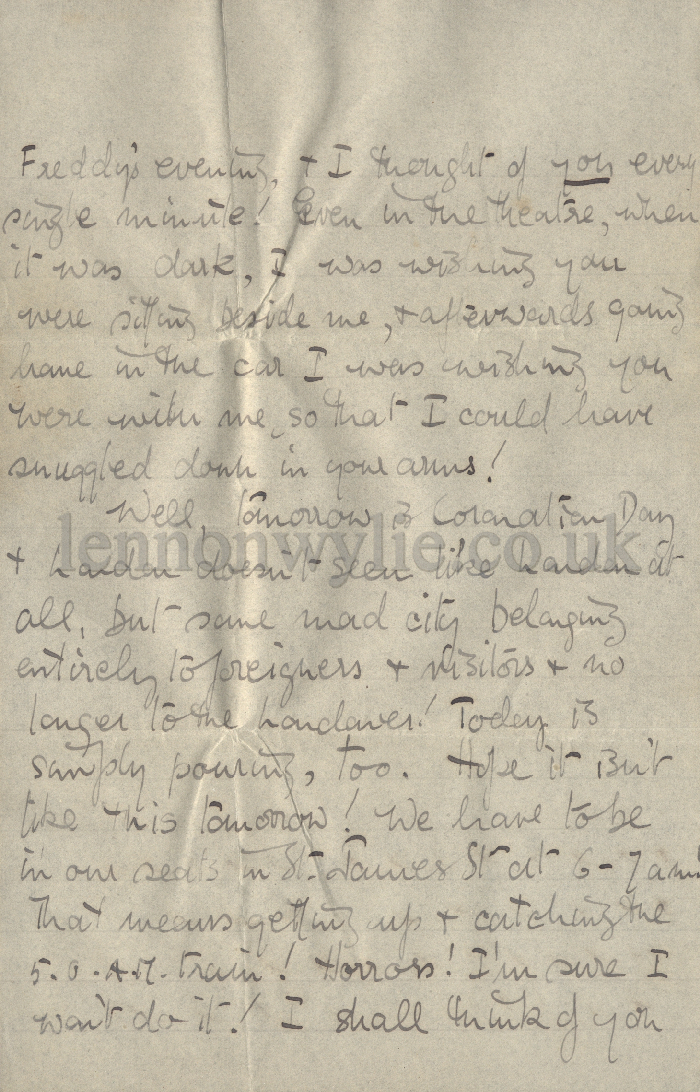 Freddy's evening, + I thought of you every
single minute! Even in the theatre, when
it was dark, I was wishing you
were sitting beside me, + afterwards going
home in the car I was wishing you
were with me, so that I could have
snuggled down in your arms!
Well, tomorrow is Coronation Day
lennonwylie.co.uk
+ London doesn't seem like London at
all, but some mad city belonging
entirely to foreigners + visitors + no
longer to the Londoner! Today is
simply pouring, too. Hope it isn't
like this tomorrow! We have to be
in our seats in St. James St at 6-7am!
That means getting up + catching the
5.0.A.M. train! Horrors! I'm sure I
won't do it! I shall think of you